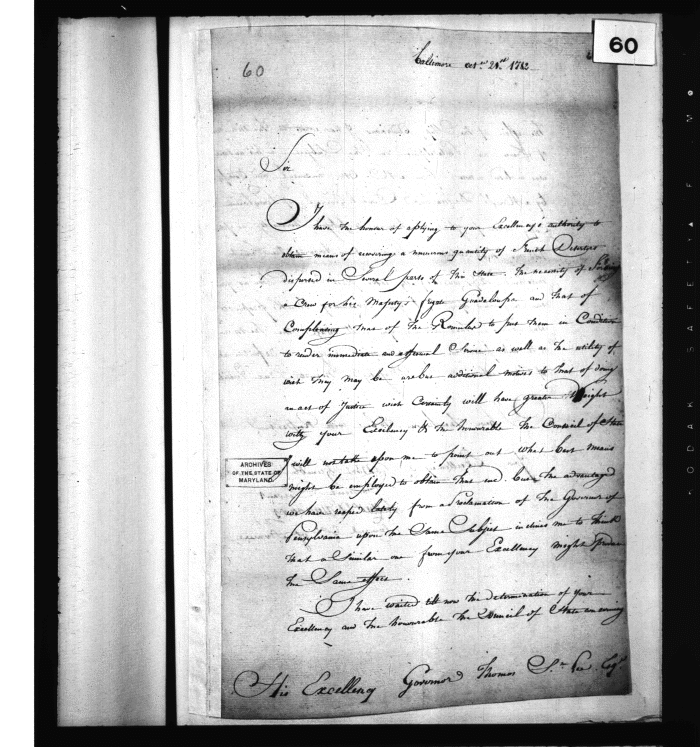 60
60
Baltimore oct. 21st 1782
Sir
I have the honour of applying to your Excellency's authority to
obtain means of recovering a numerous quantity of French Deserters
dispersed in Several parts of the State. The necessity of
a Crew for his Majesty's frigate Guadeloupe and that of
Compleating that of the Romulus to put them in Condition
to render immediate and effectual Service as well as the utility of
wich they may be are but additional motives to that of doing
an act of Justice wich Certainly will have greater Weight
with your Excellency & the honourable the Council of State
I will not take upon me to point out what best means
might be employed to obtain that end, but the advantage
we have reaped lately from a Proclamation of the Governor of
Pensylvania upon the Same Subject inclines me to think
that a Similar one from your Excellency might produce
the Same effect.
I have waited till now the determination of your
Excellency and the honourable the Council of State
His Excellency Governor Thomas S. Lee Esqr
ARCHIVES
OF THE STATE OF
MARYLAND
KODAK SAFETY